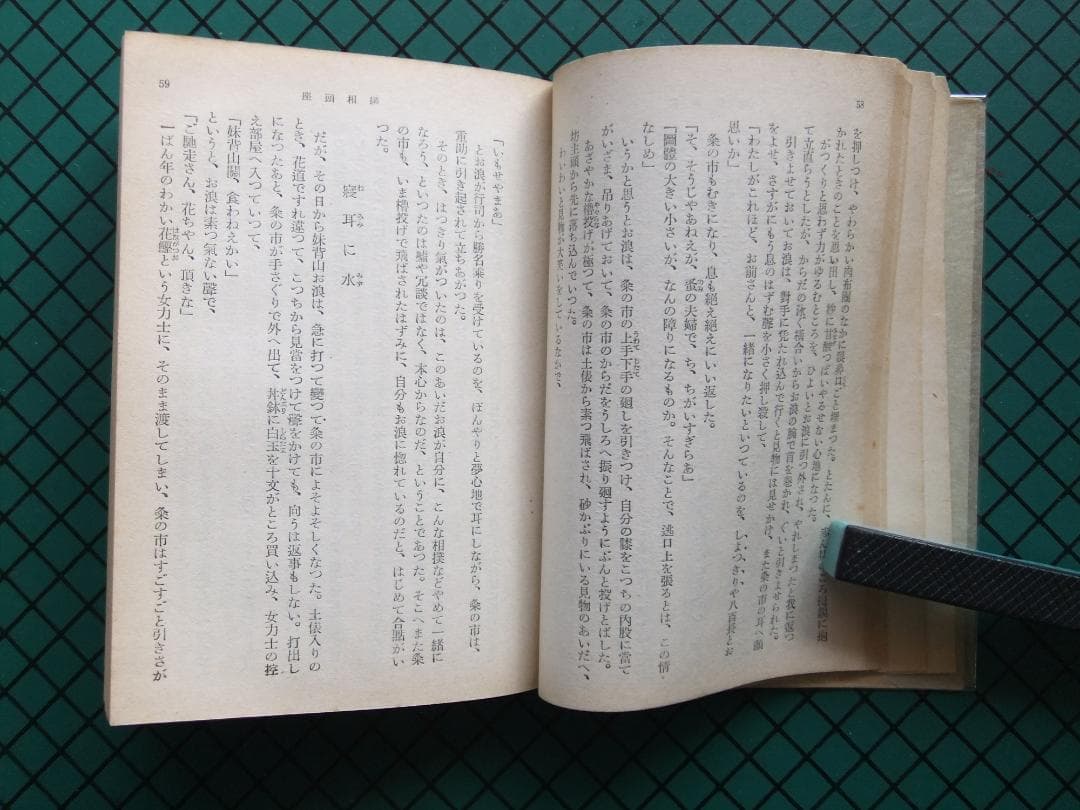 58
を押しつけ、やわらかい肉布團のなかに
かれたときのことを思い出し、
がつくりと思わず力がゆるむところを、ひよいとお浪に引つ外され、やれしまつたと我に返つ
て立直らうとしたが、からだの泳ぐ横合いからお浪の腕で首を惹かれ、ぐいと引きよせられた。
引きよせておいてお浪は、對手に凭たれ込んで行くと見物には見せかけ、また粂の市の耳へ顏
をよせ、さすがにもう息のはずむ聲を小さく押し殺して、
「わたしがこれほど、お前さんと、一緒になりたいといつているのを、しよつきりや八百長とお
思いか」
粂の市もむきになり、息も絶え絶えにいい返した。
「そ、そうじやあねえが、蚤の夫婦で、ち、ちがいすぎらあ」
「圖體の大きい小さいが、なんの障りになるものか。そんなことで、逃口上を張るとは、この情
なしめ」
いうかと思うとお浪は、粂の市の上手下手の廻しを引きつけ、自分の膝をこつちの内股に當て
がいざま、吊りあげておいて、粂の市のからだをうしろへ振り廻すようにぶんと投げとばした。
あざやかな櫓投げが極つて、粂の市は土俵から素つ飛ばされ、砂かぶりにいる見物のあいだへ、
坊主頭から先に落ち込んでいつた。
わいわいと見物が大笑いをしているなかで、
59
座頭相撲
「いもせやまあ」
とお浪が行司から勝名乘りを受けているのを、ぼんやりと夢心地で耳にしながら、粂の市は、
重助に引き起されて立ちあがつた。
そのとき、はつきり氣がついたのは、このあいだお浪が自分に、こんな相撲などやめて一緒に
なろう、といつたのは嘘や冗談ではなく、本心からなのだ、ということであつた。そこへまた粂
の市も、いま櫓投げで飛ばされたはずみに、自分もお浪に惚れているのだと、はじめて合點がい
つた。
寢耳に水
だが、その日から妹背山お浪は、急に打つて變つて粂の市によそよそしくなつた。土俵入りの
とき、花道ですれ違つて、こつちから見當をつけて聲をかけても、向うは返事もしない。打出し
になつたあと、粂の市が手さぐりで外へ出て、丼鉢に白玉を十文がところ買い込み、女力士の控
え部屋へ入つていつて、
「妹背山關、食わねえかい」
というと、お浪は素つ氣ない聲で、
「ご馳走さん、花ちやん、頂きな」
一ばん年のわかい花鰹という女力士に、そのまま渡してしまい、粂の市はすごすごと引きさが